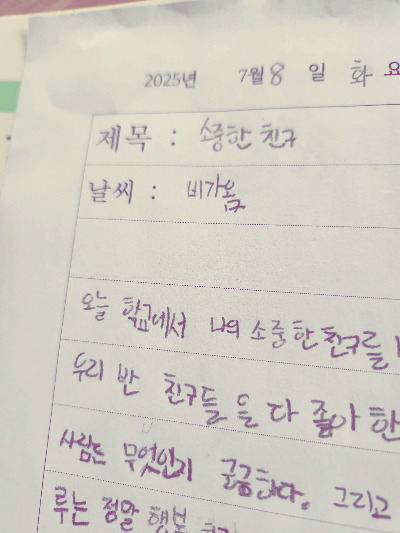 2025년 7월 8 일 화 요
제목 : 소중한 친구
날씨 : 비가옴
오늘 학교에서 나의 소중한 친구를
우리 반 친구들 을 다 좋아 한
사람은 무엇인지 궁금하다. 그리고
루는 정말 행복